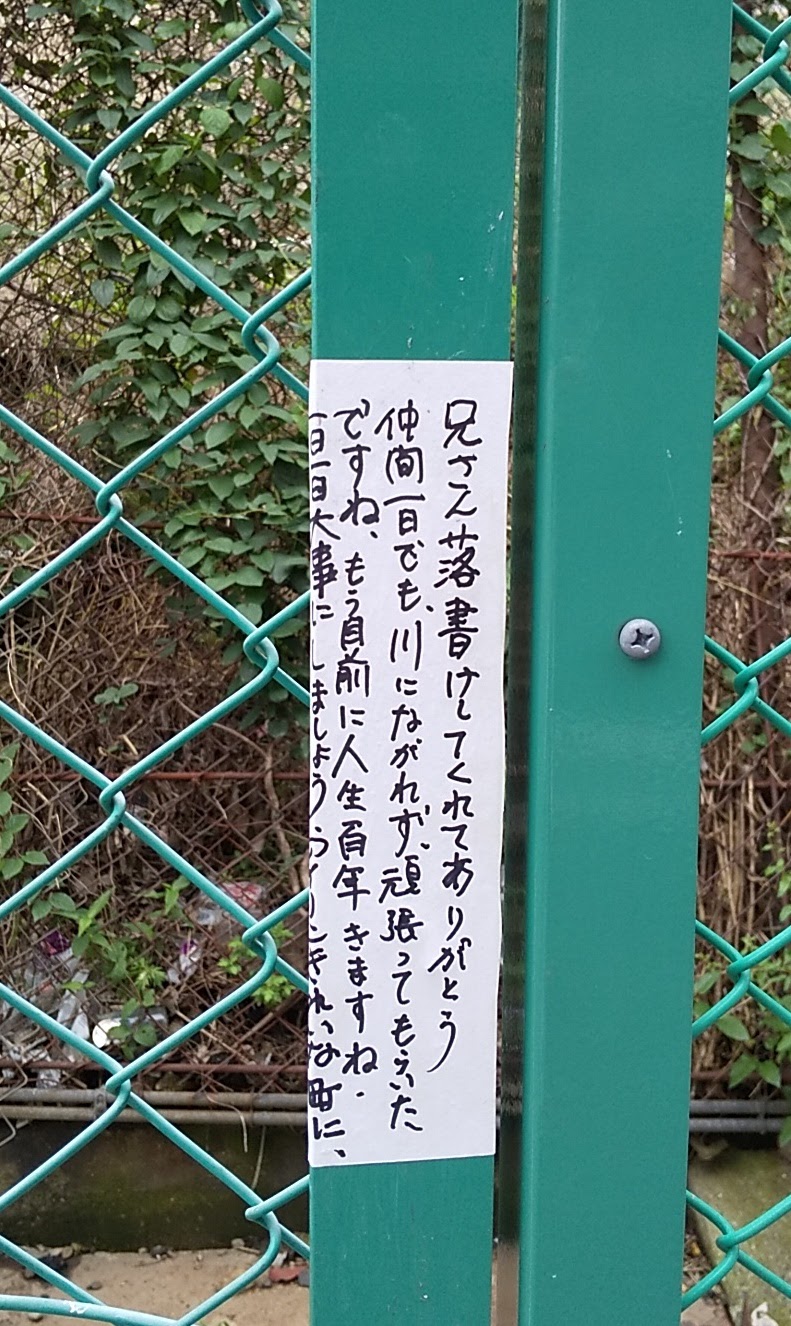 兄さん落書けしてくれてありがとう
仲間一日でも、川にながれず、頑張ってもらいた
ですね、もう目前に人生百年きますね.
一日一日大事にしましょう きれいな町に、